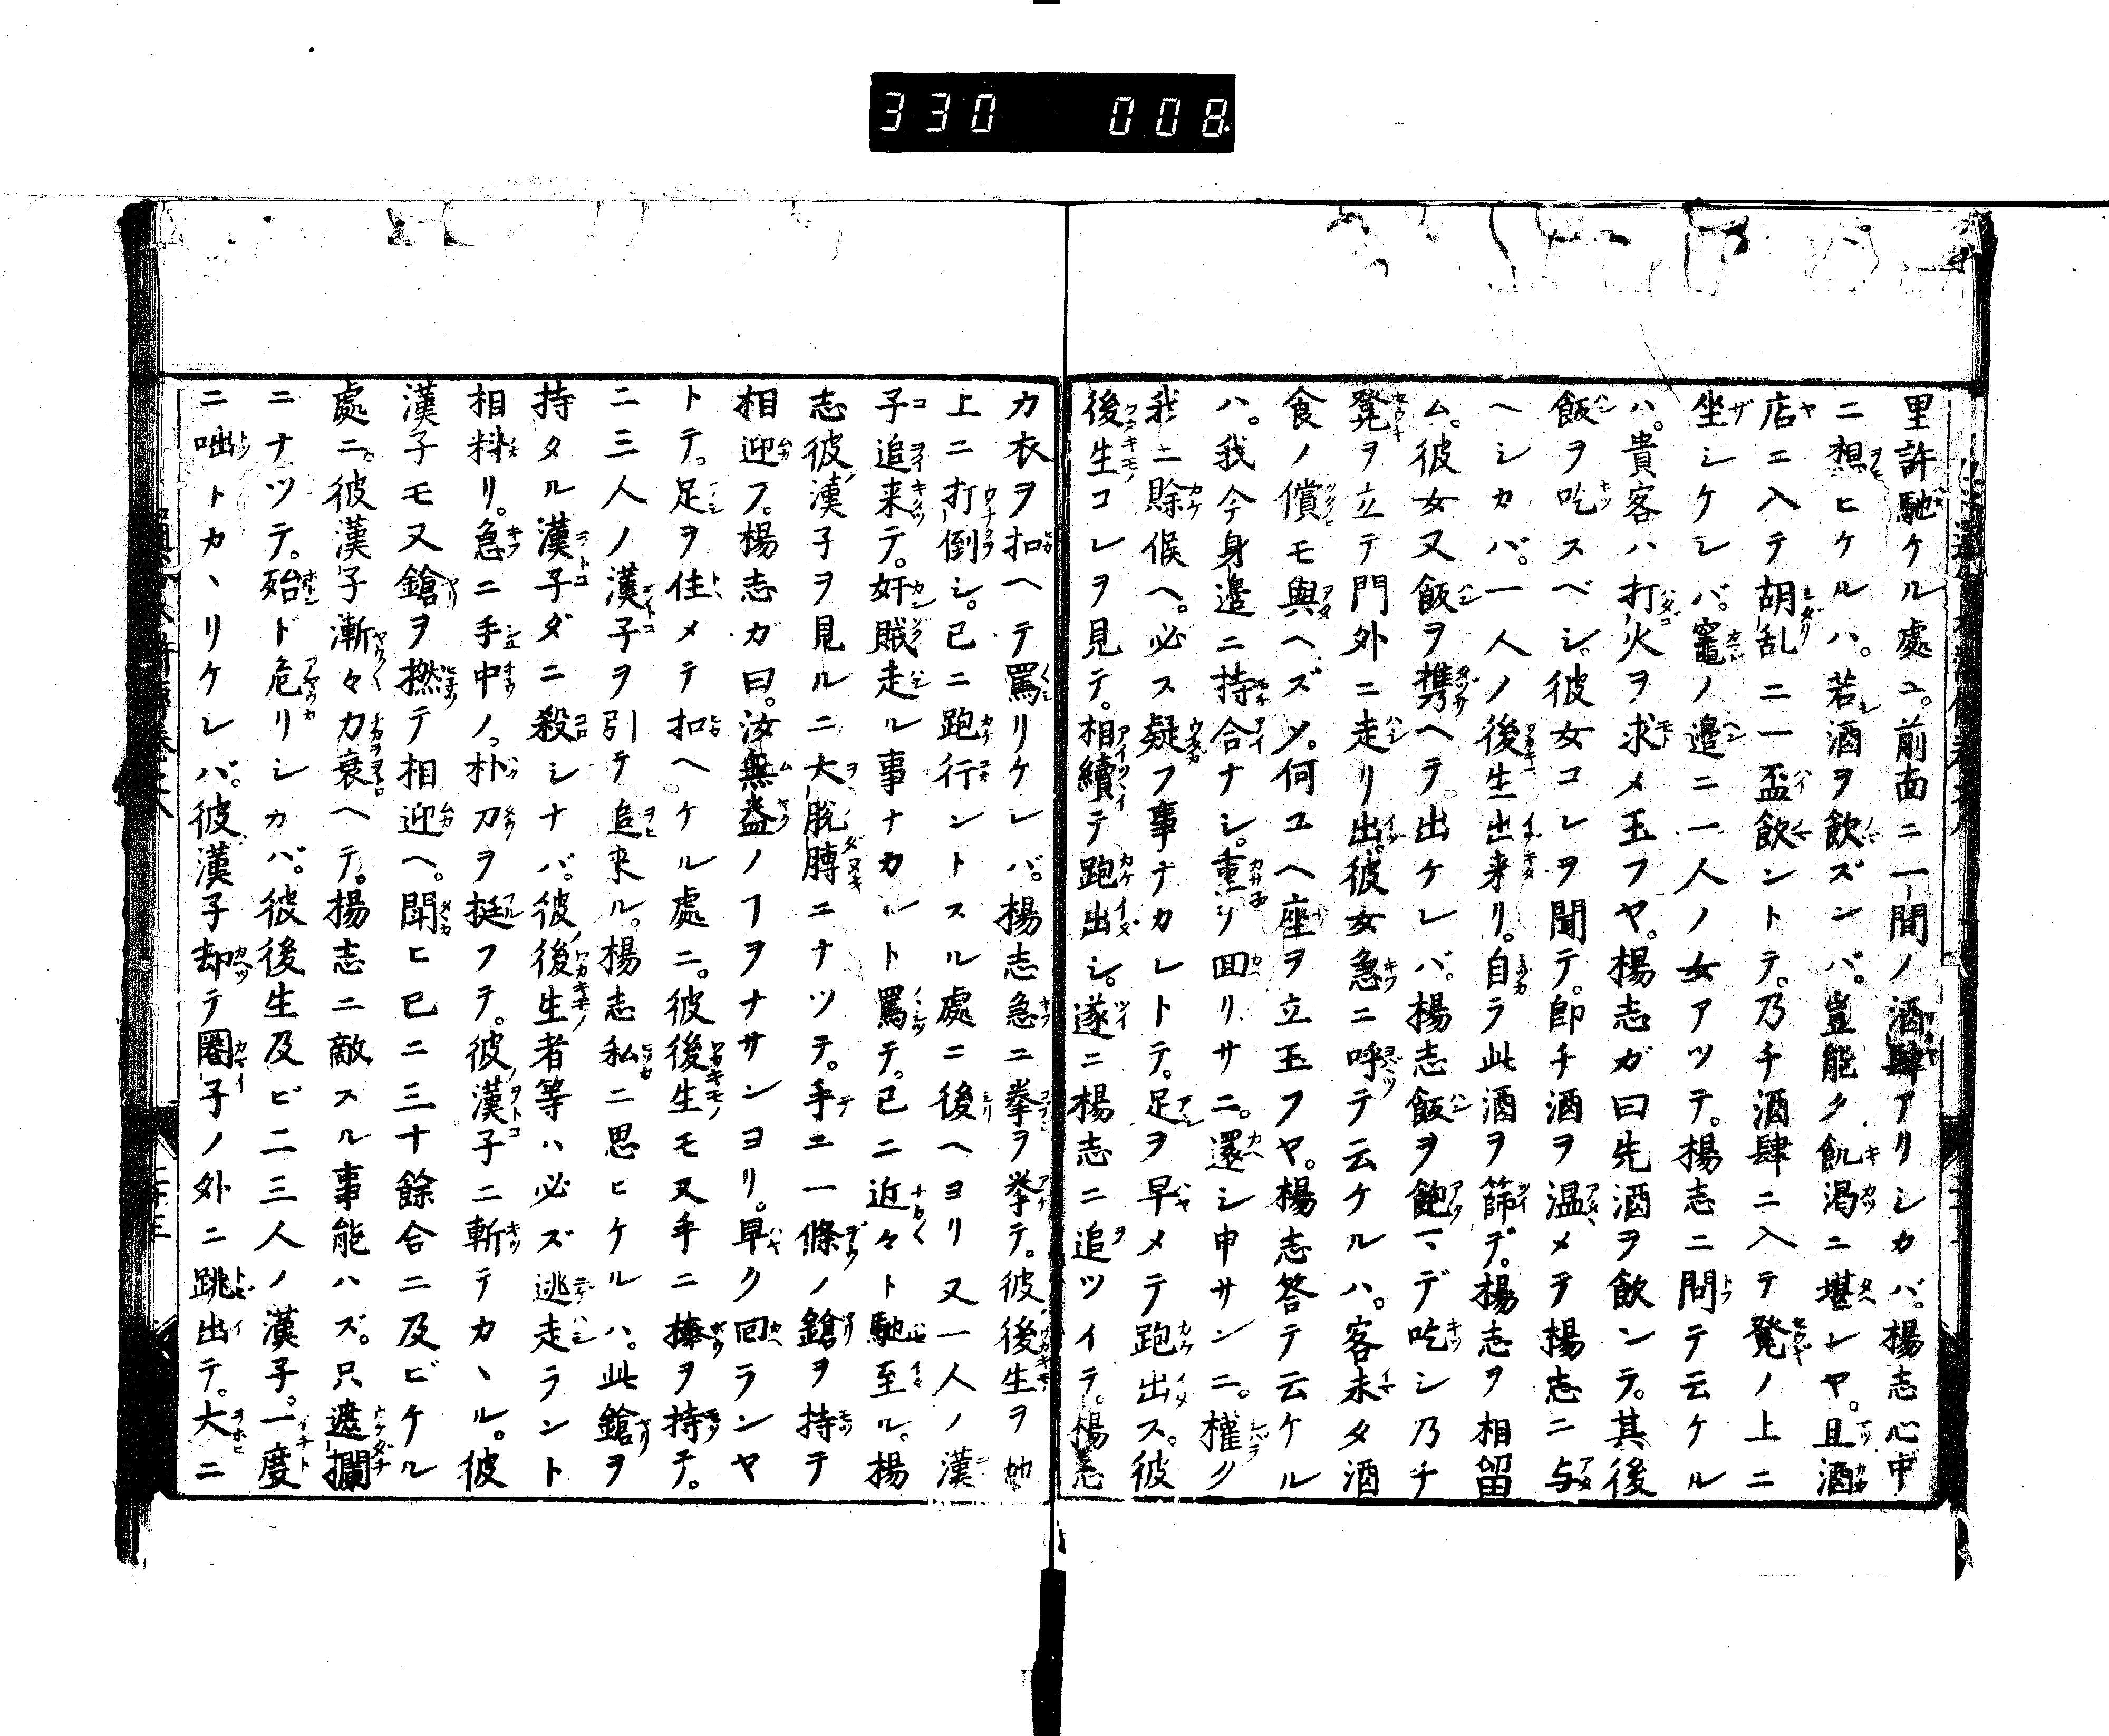 330 008
里許馳ケル處ニ。前面ニ一間ノ酒肆アリシカバ。楊志心中
ニ想ヒケルハ。若酒ヲ飲ズンバ。豈能ク飢渇ニ堪ンヤ。且酒
店ニ入テ胡乱ニ一盃飲ントテ。乃チ酒肆ニ入テ凳ノ上ニ
坐シケレバ。竈ノ邉ニ一人ノ女アツテ。楊志ニ問テ云ケル
ハ。貴客ハ打火ヲ求メ玉フヤ。楊志ガ曰先酒ヲ飲ンテ。其後
飯ヲ吃スベシ。彼女コレヲ聞テ。即チ酒ヲ温メテ楊志ニ与
ヘシカバ。一人ノ後生出来リ。自ラ此酒ヲ篩デ。楊志ヲ相留
ム。彼女又飯ヲ携ヘテ出ケレバ。楊志飯ヲ飽マデ吃シ乃チ
凳ヲ立テ門外ニ走リ出。彼女急ニ呼テ云ケルハ。客未タ酒
食ノ償モ與ヘズ乄。何ユヘ座ヲ立玉フヤ。楊志答テ云ケル
ハ。我今身邉ニ持合ナシ。重子回リサニ。還シ申サンニ。權ク
我ニ賒候ヘ。必ス疑フ事ナカレトテ。足ヲ早メテ跑出ス。彼
後生コレヲ見テ。相續テ跑出シ。遂ニ楊志ニ追ツイテ。楊志
カ衣ヲ扣ヘテ罵リケレバ。楊志急ニ拳ヲ挙テ。彼後生ヲ地
上ニ打倒シ。已ニ跑行ントスル處ニ後ヘヨリ又一人ノ漢
子追来テ。奸賊走ル事ナカレト罵テ。已ニ近々ト馳至ル。楊
志彼漢子ヲ見ルニ大脱膊ニナツテ。手ニ一條ノ鎗ヲ持テ
相迎フ。楊志ガ曰。汝無益ノヿヲナサンヨリ。早ク回ランヤ
トテ。足ヲ住メテ扣ヘケル處ニ。彼後生モ又手ニ棒ヲ持テ。
二三人ノ漢子ヲ引テ追来ル。楊志私ニ思ヒケルハ。此鎗ヲ
持タル漢子ダニ殺シナバ。彼後生者等ハ必ズ逃走ラント
相料リ。急ニ手中ノ朴刀ヲ挺フテ。彼漢子ニ斬テカヽル。彼
漢子モ又鎗ヲ撚テ相迎ヘ。闘ヒ已ニ三十餘合ニ及ビケル
處ニ。彼漢子漸々力衰ヘテ。楊志ニ敵スル事能ハズ。只遮攔
ニナツテ。殆ド危リシカバ。彼後生及ビ二三人ノ漢子。一度
ニ咄トカヽリケレバ。彼漢子却テ圏子ノ外ニ跳出テ。大ニ